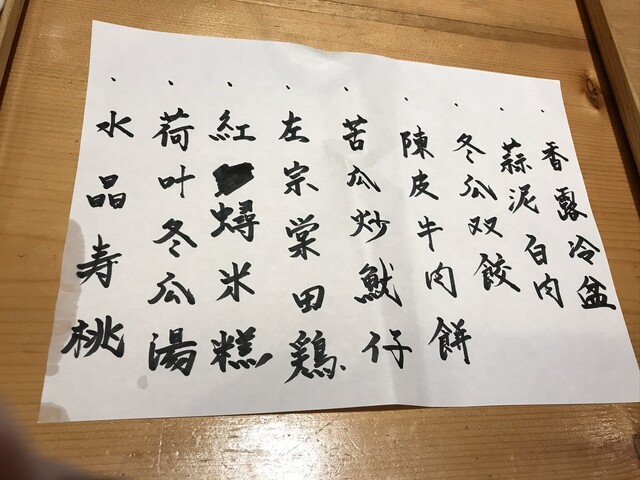 香露冷盆
蒜泥白肉
冬瓜双餃
陳皮牛肉餅
苦瓜炒魷仔
左宗棠田鶏
紅蟳米糕
荷叶冬瓜湯
水晶寿桃